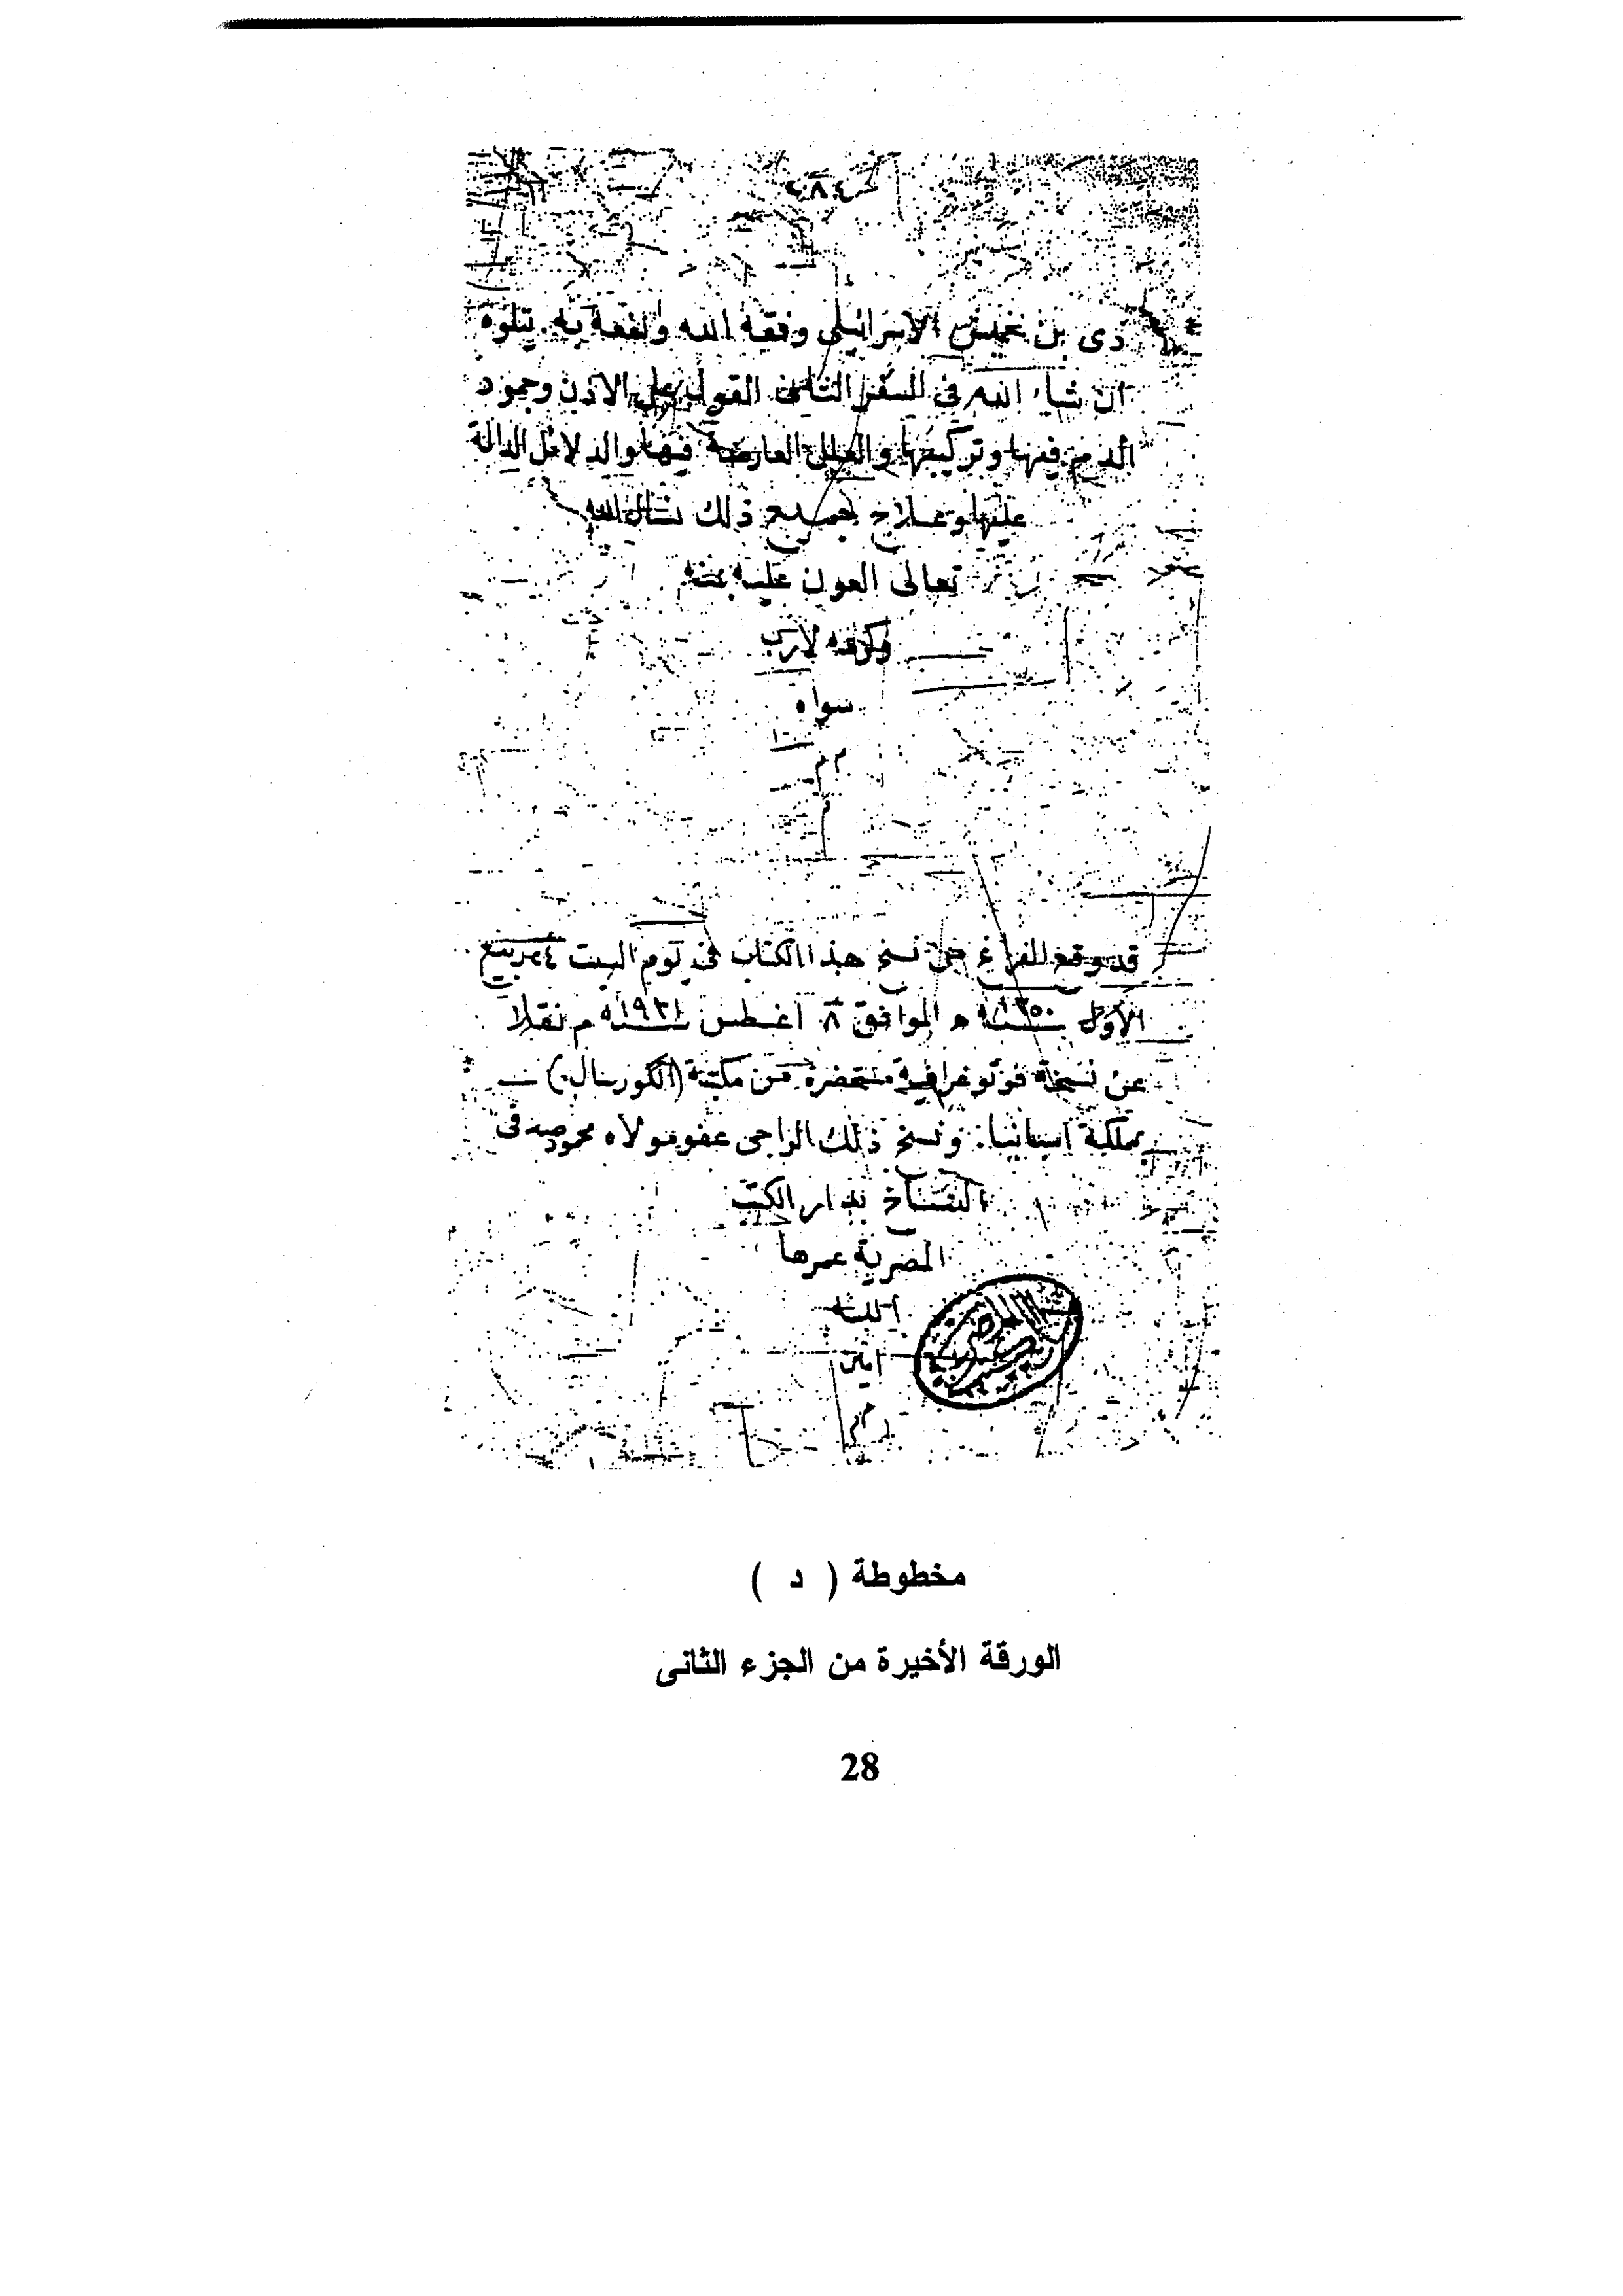 دى بن خميس الإسرائيلى وفقه الله ونفعه به يتلوه
ان شاء الله فى السفر الثانى القول على الاذن وجمود
الدم فيها وتركيبها والعلل العارضة فيها والدلائل الدالة
عليها وعلاج جميع ذلك نسال الله
تعالى العون عليه بمنه
وكرمه لارب
سواه
م م
م
قد وقع الفراغ من نسخ هذا الكتاب فى يوم السبت ٢٤ ربيع
الأول سنة ١٣٥٠ ه الموافق ٨ اغسطس سنة ١٩٣١ م نقلا
عن نسخة فوتوغرافية مستحضرة من مكتبة (الكوريال)
بمملكة اسبانيا. ونسخ ذلك الراجى عفو مولاه محمود صدقى
النساخ بدار الكتب
المصرية عمرها
الله
امين
م م
مخطوطة ( د )
الورقة الأخيرة من الجزء الثانى
28